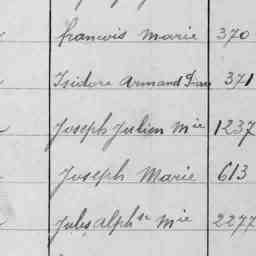 francois Marie 370
Isidore Armand 371
Joseph Julien Mie 1237
Joseph Marie 613
Jules Alphse Mie 2277